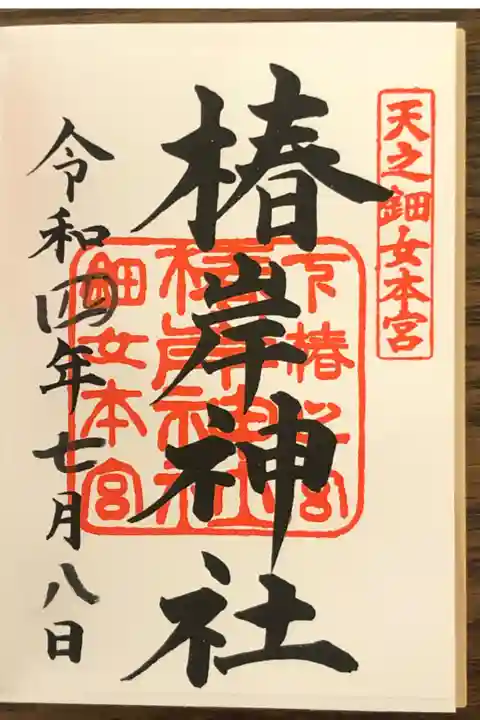 天之鈿女本宮
椿岸神社
令和四年七月八日
下椿宮
鈿女本宮